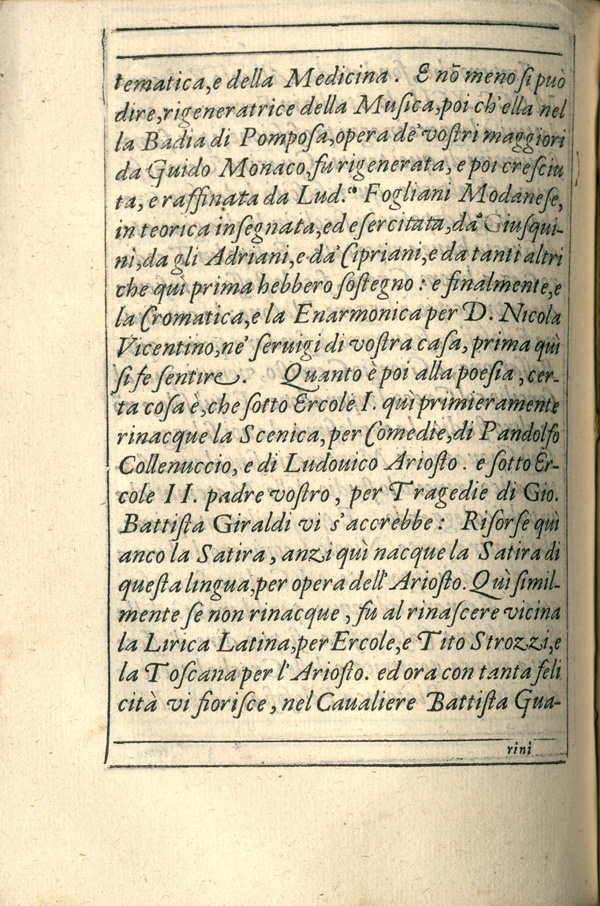 tematica, e della Medicina. E nō meno ſi può
dire, rigeneratrice della Muſica, poi ch'ella nel
la Badia di Pompoſa, opera de' voſtri maggiori
da Guido Monaco, fu rigenerata, e poi creſciu
ta, e raffinata da Lud.º Fogliani Modaneſe,
in teorica inſegnata, ed eſercitata, da' Giuſqui-
ni, da gli Adriani, e da' Cipriani, e da tanti altri
che quì prima hebbero ſoſtegno: e finalmente, e
la Cromatica, e la Enarmonica per D. Nicola
Vicentino, ne' ſeruigi di voſtra caſa, prima quì
ſi fe ſentire. Quanto è poi alla poeſia, cer-
ta coſa è, che ſotto Ercole I. quì primieramente
rinacque la Scenica, per Comedie, di Pandolfo
Collenuccio, e di Ludouico Arioſto. e ſotto Er-
cole II. padre voſtro, per Tragedie di Gio.
Battiſta Giraldi vi s'accrebbe: Riſorſe quì
anco la Satira, anzi quì nacque la Satira di
queſta lingua, per opera dell'Arioſto. Quì ſimil-
mente ſe non rinacque, fu al rinaſcere vicina
la Lirica Latina, per Ercole, e Tito Strozzi, e
la Toſcana per l'Arioſto. ed ora con tanta feli
cità vi fioriſce, nel Caualiere Battiſta Gua-
rini